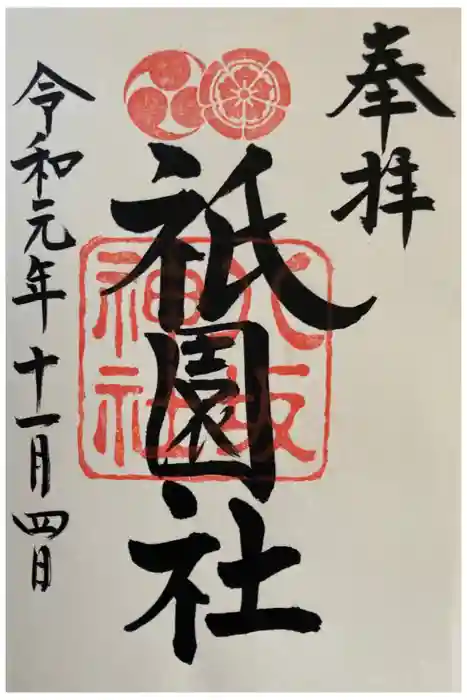 奉拝
祇園社
八坂
神社
令和元年十一月四日